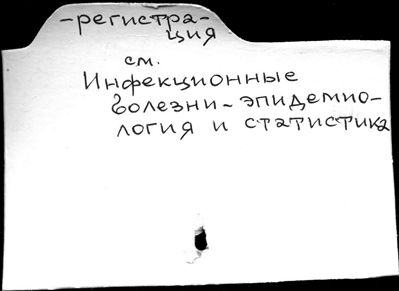 -регистра-
ция
см.
Инфекционные
болезни - эпидемио-
логия и статистика